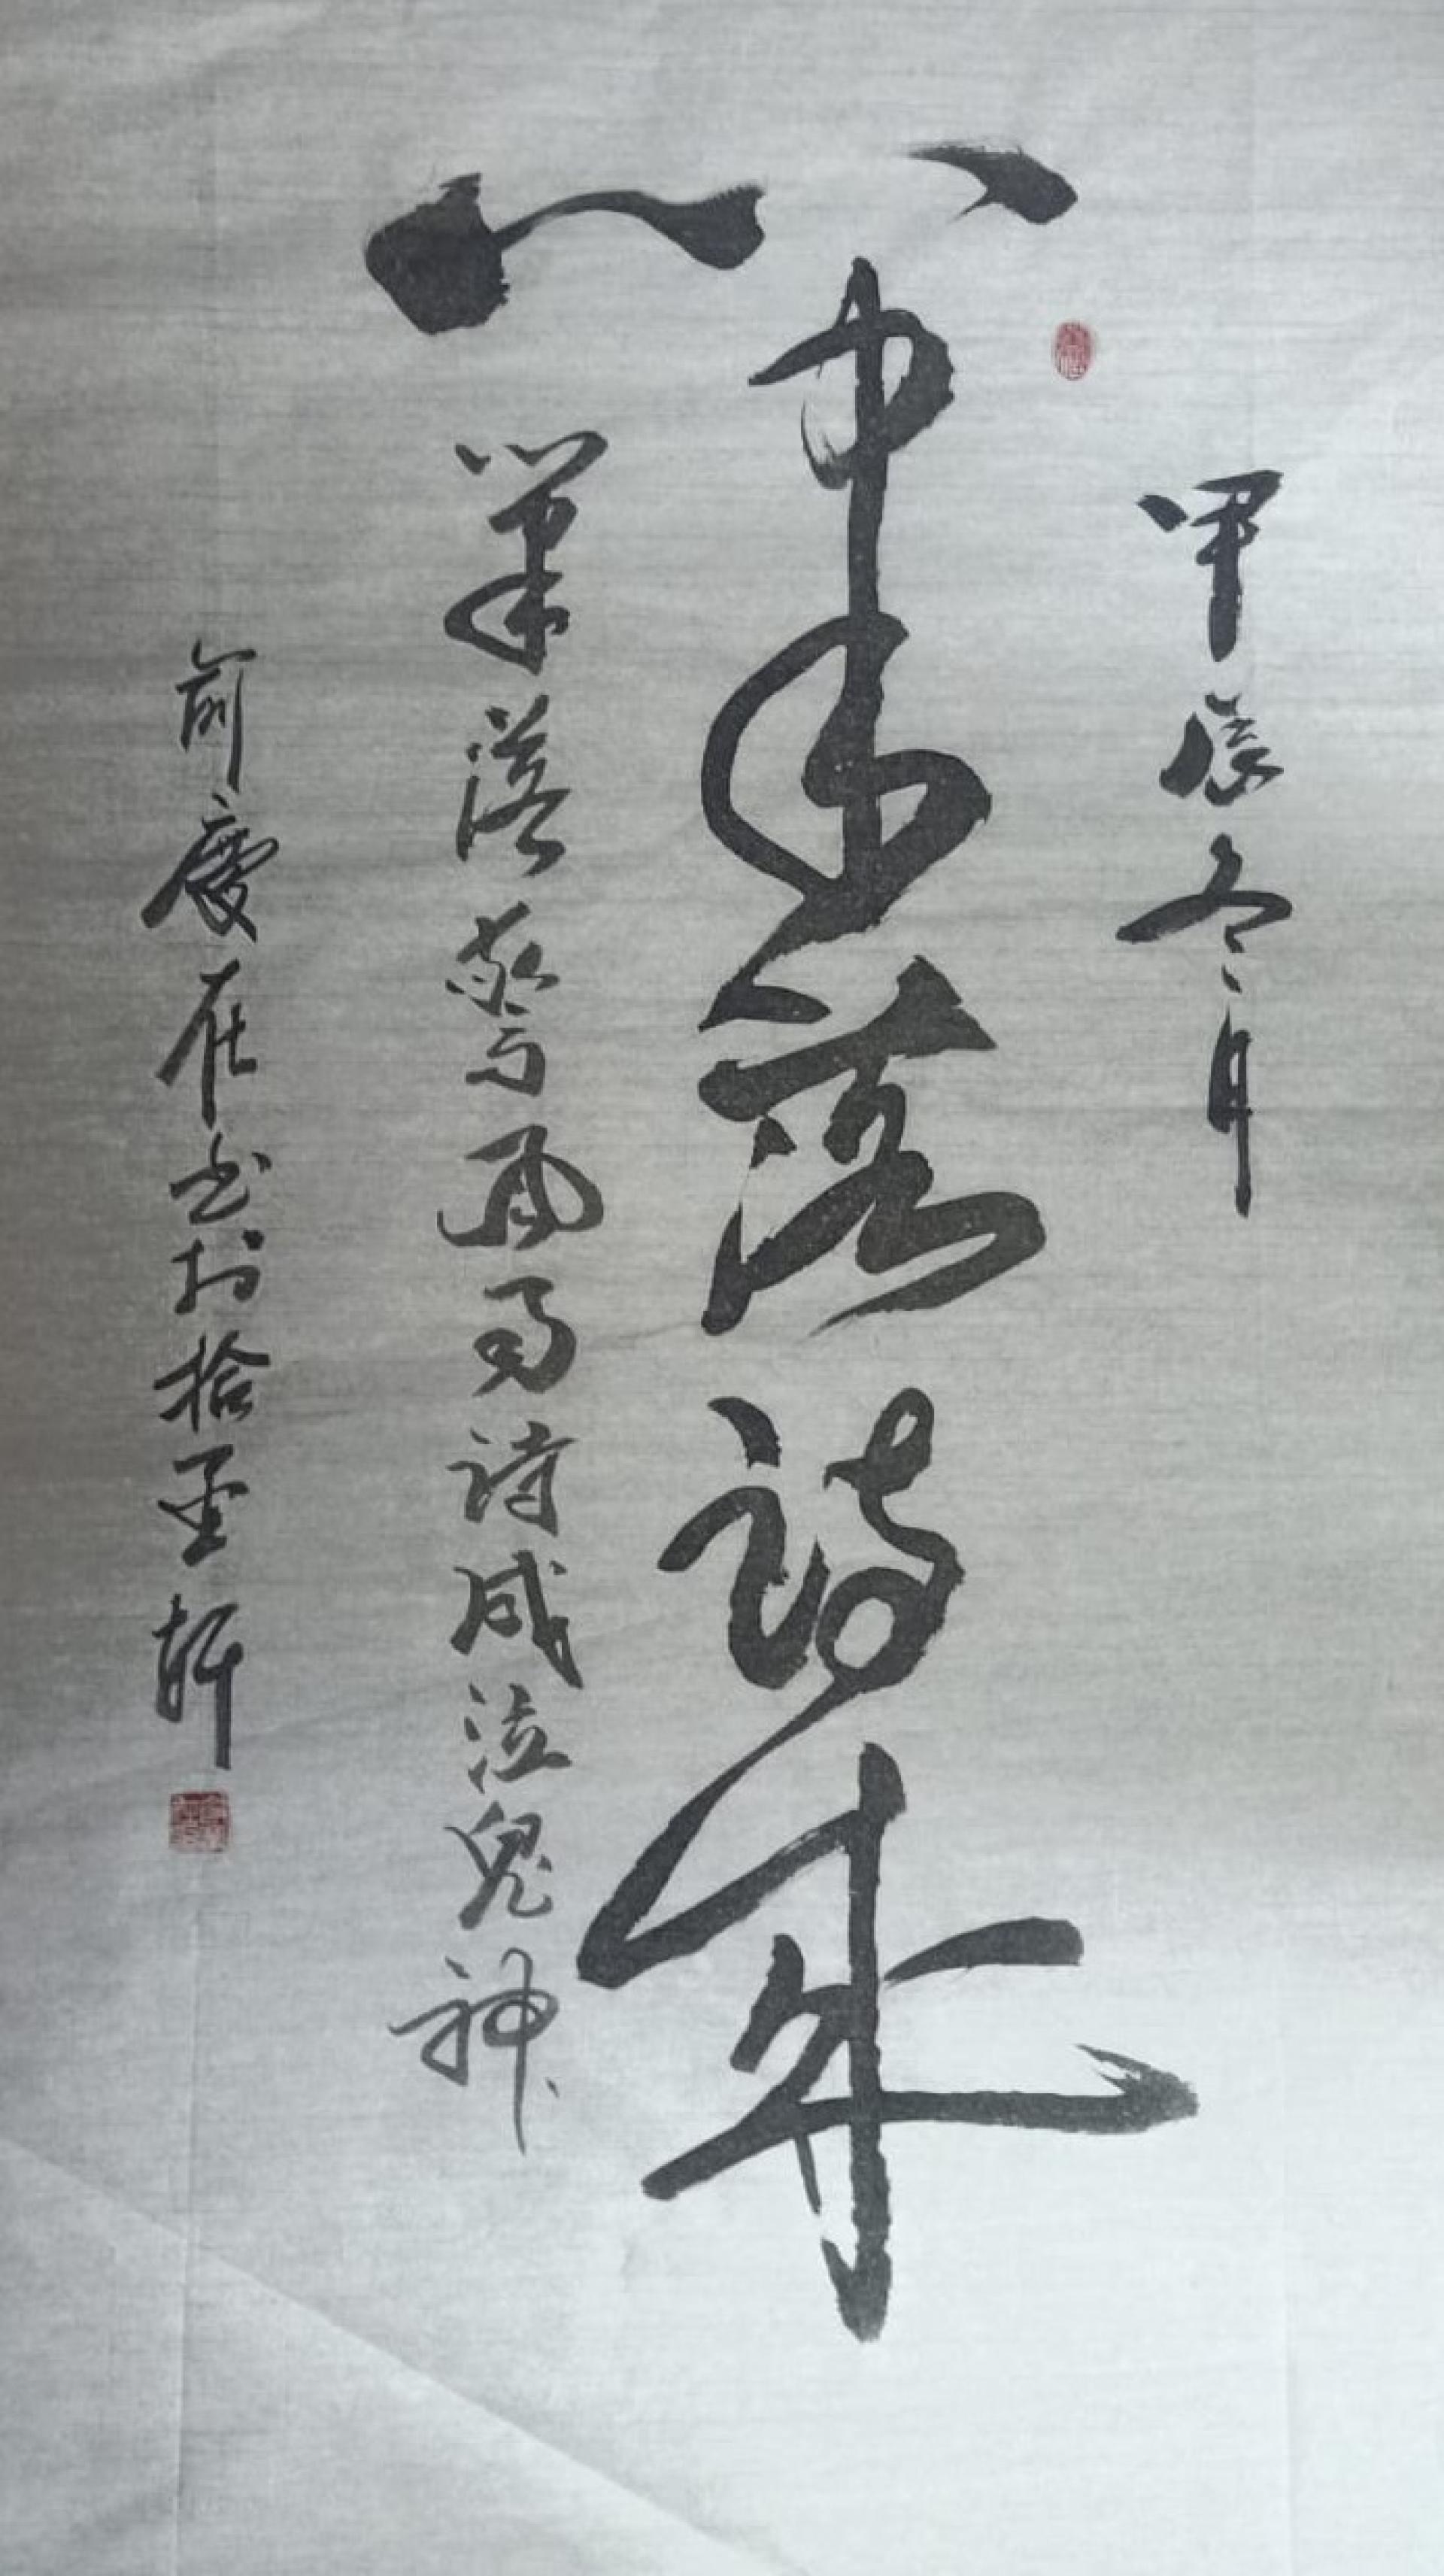 甲辰冬月
筆落詩成
筆落驚風雨詩成泣鬼神
俞慶在書於拾墨軒